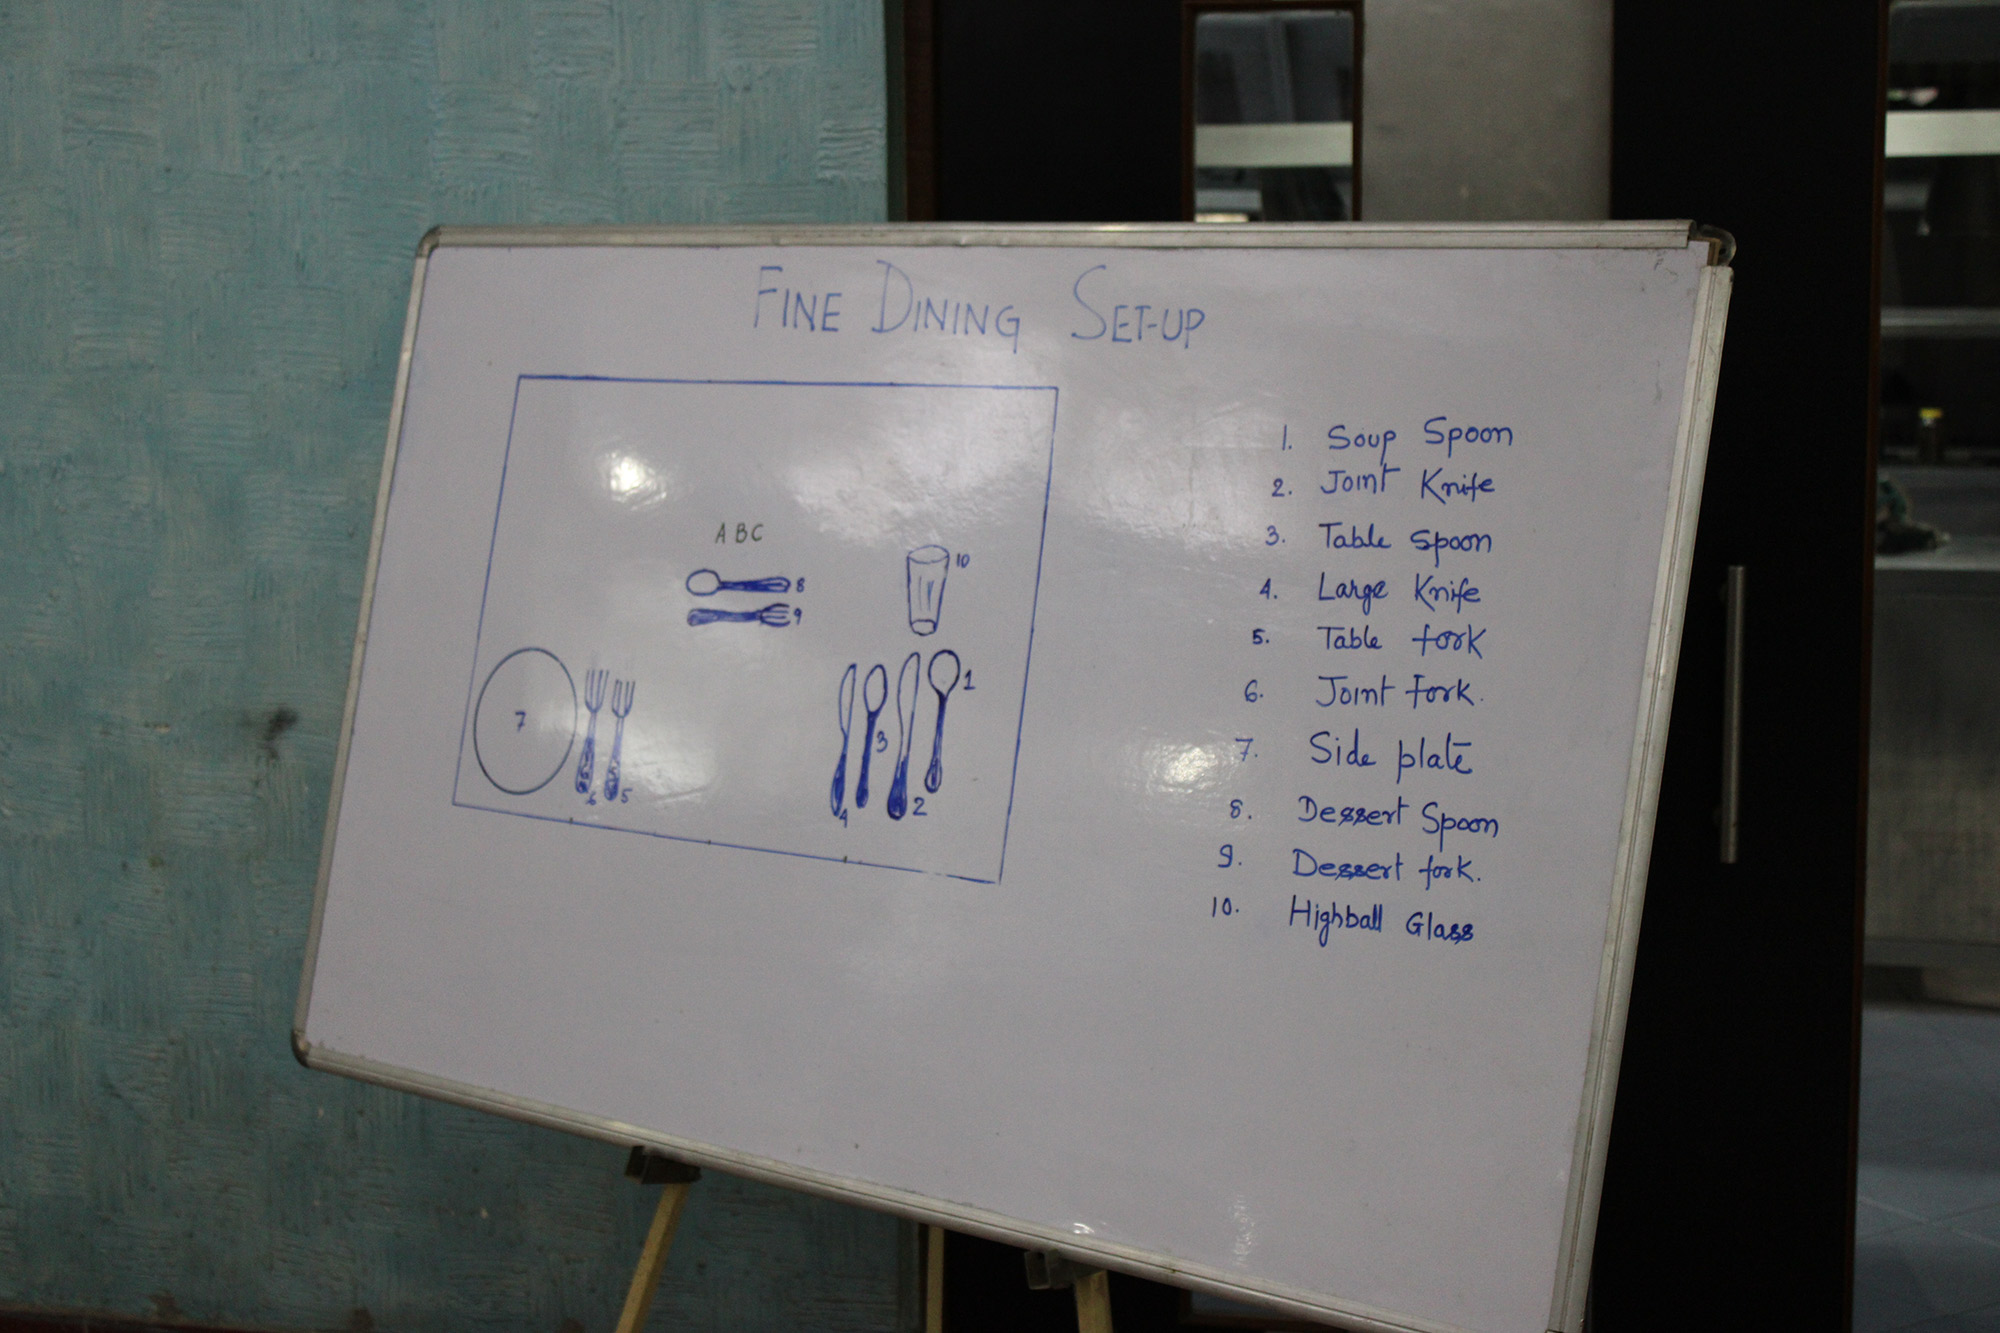 FINE DINING SET-UP
ABC
8
9
10
1
7
3
6
5
4
2
1. Soup Spoon
2. Joint Knife
3. Table spoon
4. Large Knife
5. Table fork
6. Joint Fork.
7. Side plate
8. Dessert Spoon
9. Dessert fork.
10. Highball Glass